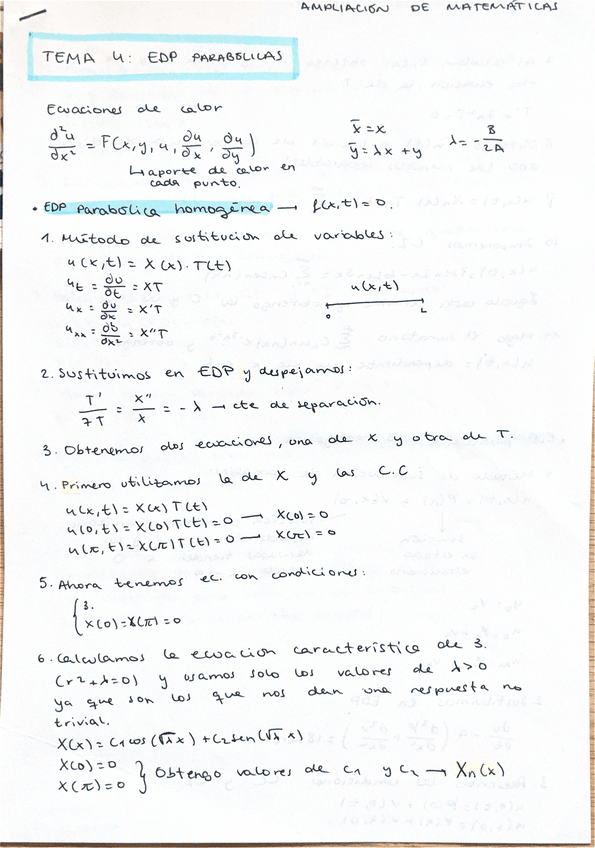 AMPLIACIÓN DE MATEMÁTICAS
TEMA 4: EDP PARABÓLICAS
Ecuaciones de calor
∂²u/∂x² = F(x, y, u, ∂u/∂x, ∂u/∂y)
x̄ = x
ȳ = λx + y
λ = - B/2A
↳ aporte de calor en
cada punto.
· EDP Parabólica homogénea → f(x,t) = 0.
1. Método de sustitucion de variables:
u(x,t) = X(x) · T(t)
u_t = ∂u/∂t = XT
u_x = ∂u/∂x = X'T
u_xx = ∂b/∂x² = X"T
u(x,t)
0 L
2. Sustituimos en EDP y despejamos:
T'/7T = X"/X = - λ → cte de separación.
3. Obtenemos dos ecuaciones, una de X y otra de T.
4. Primero utilizamos la de X y las C.C
u(x,t) = X(x) T(t)
u(0,t) = X(0) T(t) = 0 → X(0) = 0
u(π,t) = X(π) T(t) = 0 → X(π) = 0
5. Ahora tenemos ec. con condiciones:
{ 3.
X(0) = X(π) = 0
6. Calculamos la ecuacion característica de 3.
(r² + λ = 0) y usamos solo los valores de λ > 0
ya que son los que nos dan una respuesta no
trivial.
X(x) = C1 cos(√λ x) + C2 sen(√λ x)
X(0) = 0
X(π) = 0 } Obtengo valores de C1 y C2 → Xn(x)